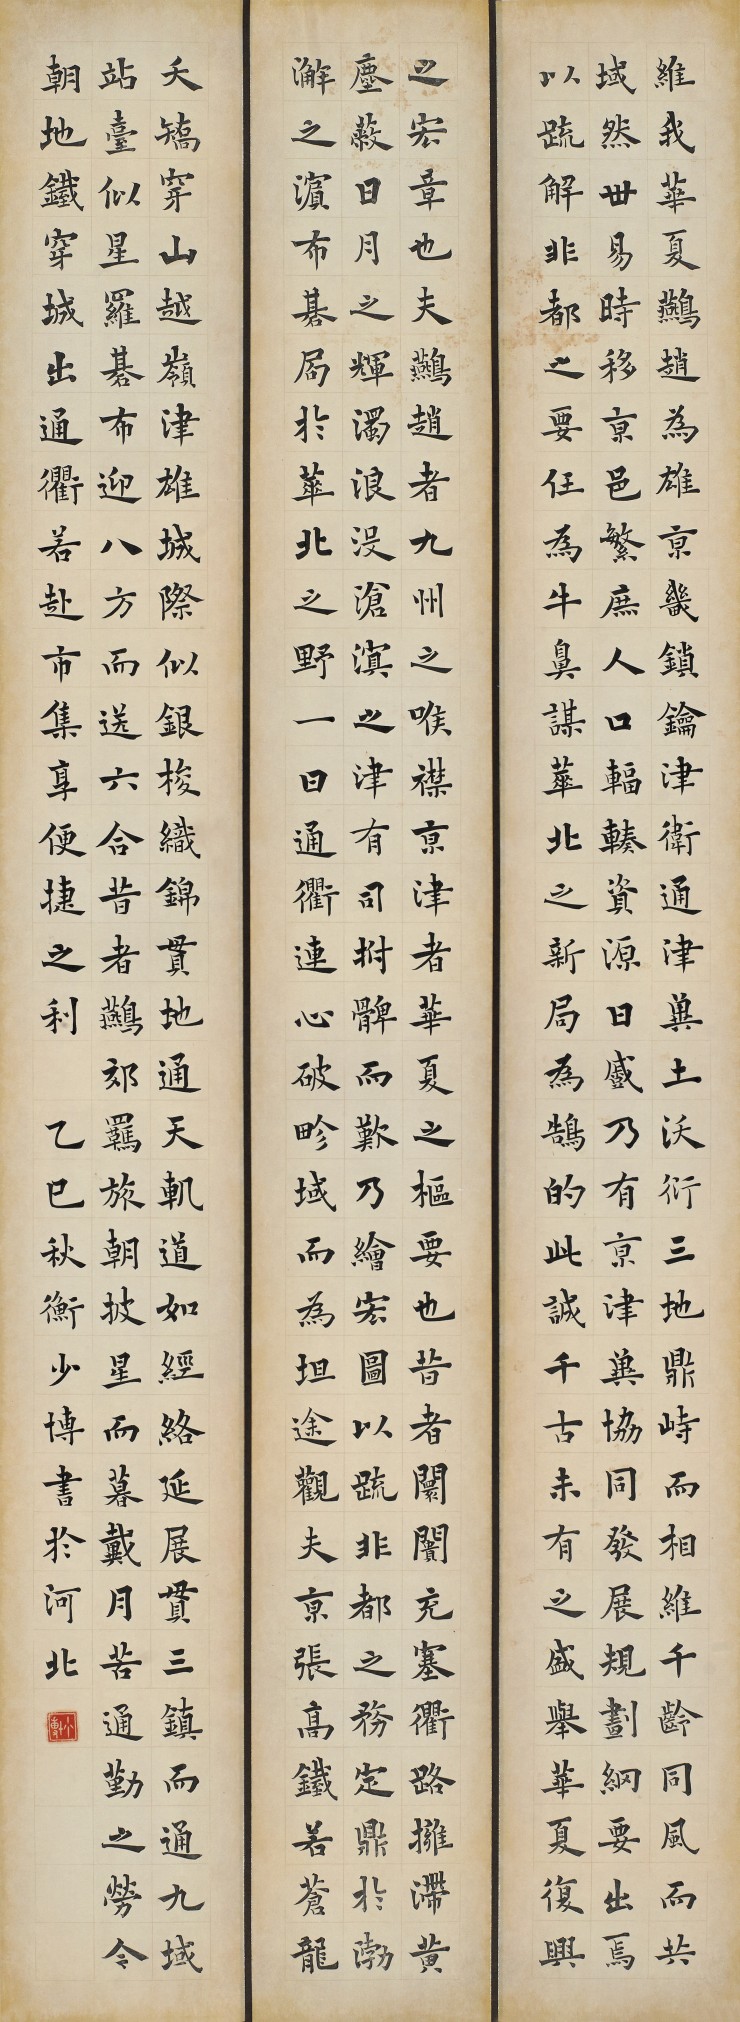 維我華夏鷰趙為雄京畿鎖鑰津衛通津兾土沃衍三地鼎峙而相維千齡同風而共
域然世易時移京邑繁庶人口輻輳資源日盛乃有京津兾協同發展規劃綱要出焉
以疏解非都之要任為牛鼻謀華北之新局為鵠的此誠千古未有之盛舉華夏復興
之宏章也夫鷰趙者九州之喉襟京津者華夏之樞要也昔者闤闠充塞衢路擁滯黃
塵蔽日月之輝濁浪浸滄溟之津有司拊髀而歎乃繪宏圖以疏非都之務定鼎於渤
澥之濱布棊局於華北之野一日通衢連心破畛域而為坦途觀夫京張高鐵若蒼龍
夭矯穿山越嶺津雄城際似銀梭織錦貫地通天軌道如經絡延展貫三鎮而通九域
站臺似星羅棊布迎八方而送六合昔者鷰郊羈旅朝披星而暮戴月苦通勤之勞今
朝地鐵穿城出通衢若赴市集享便捷之利 乙巳秋衡少博書於河北
少博